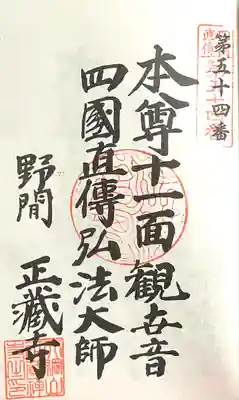 第五十四番
本尊十一面観世音
四國直傳弘法大師
野間
正蔵寺